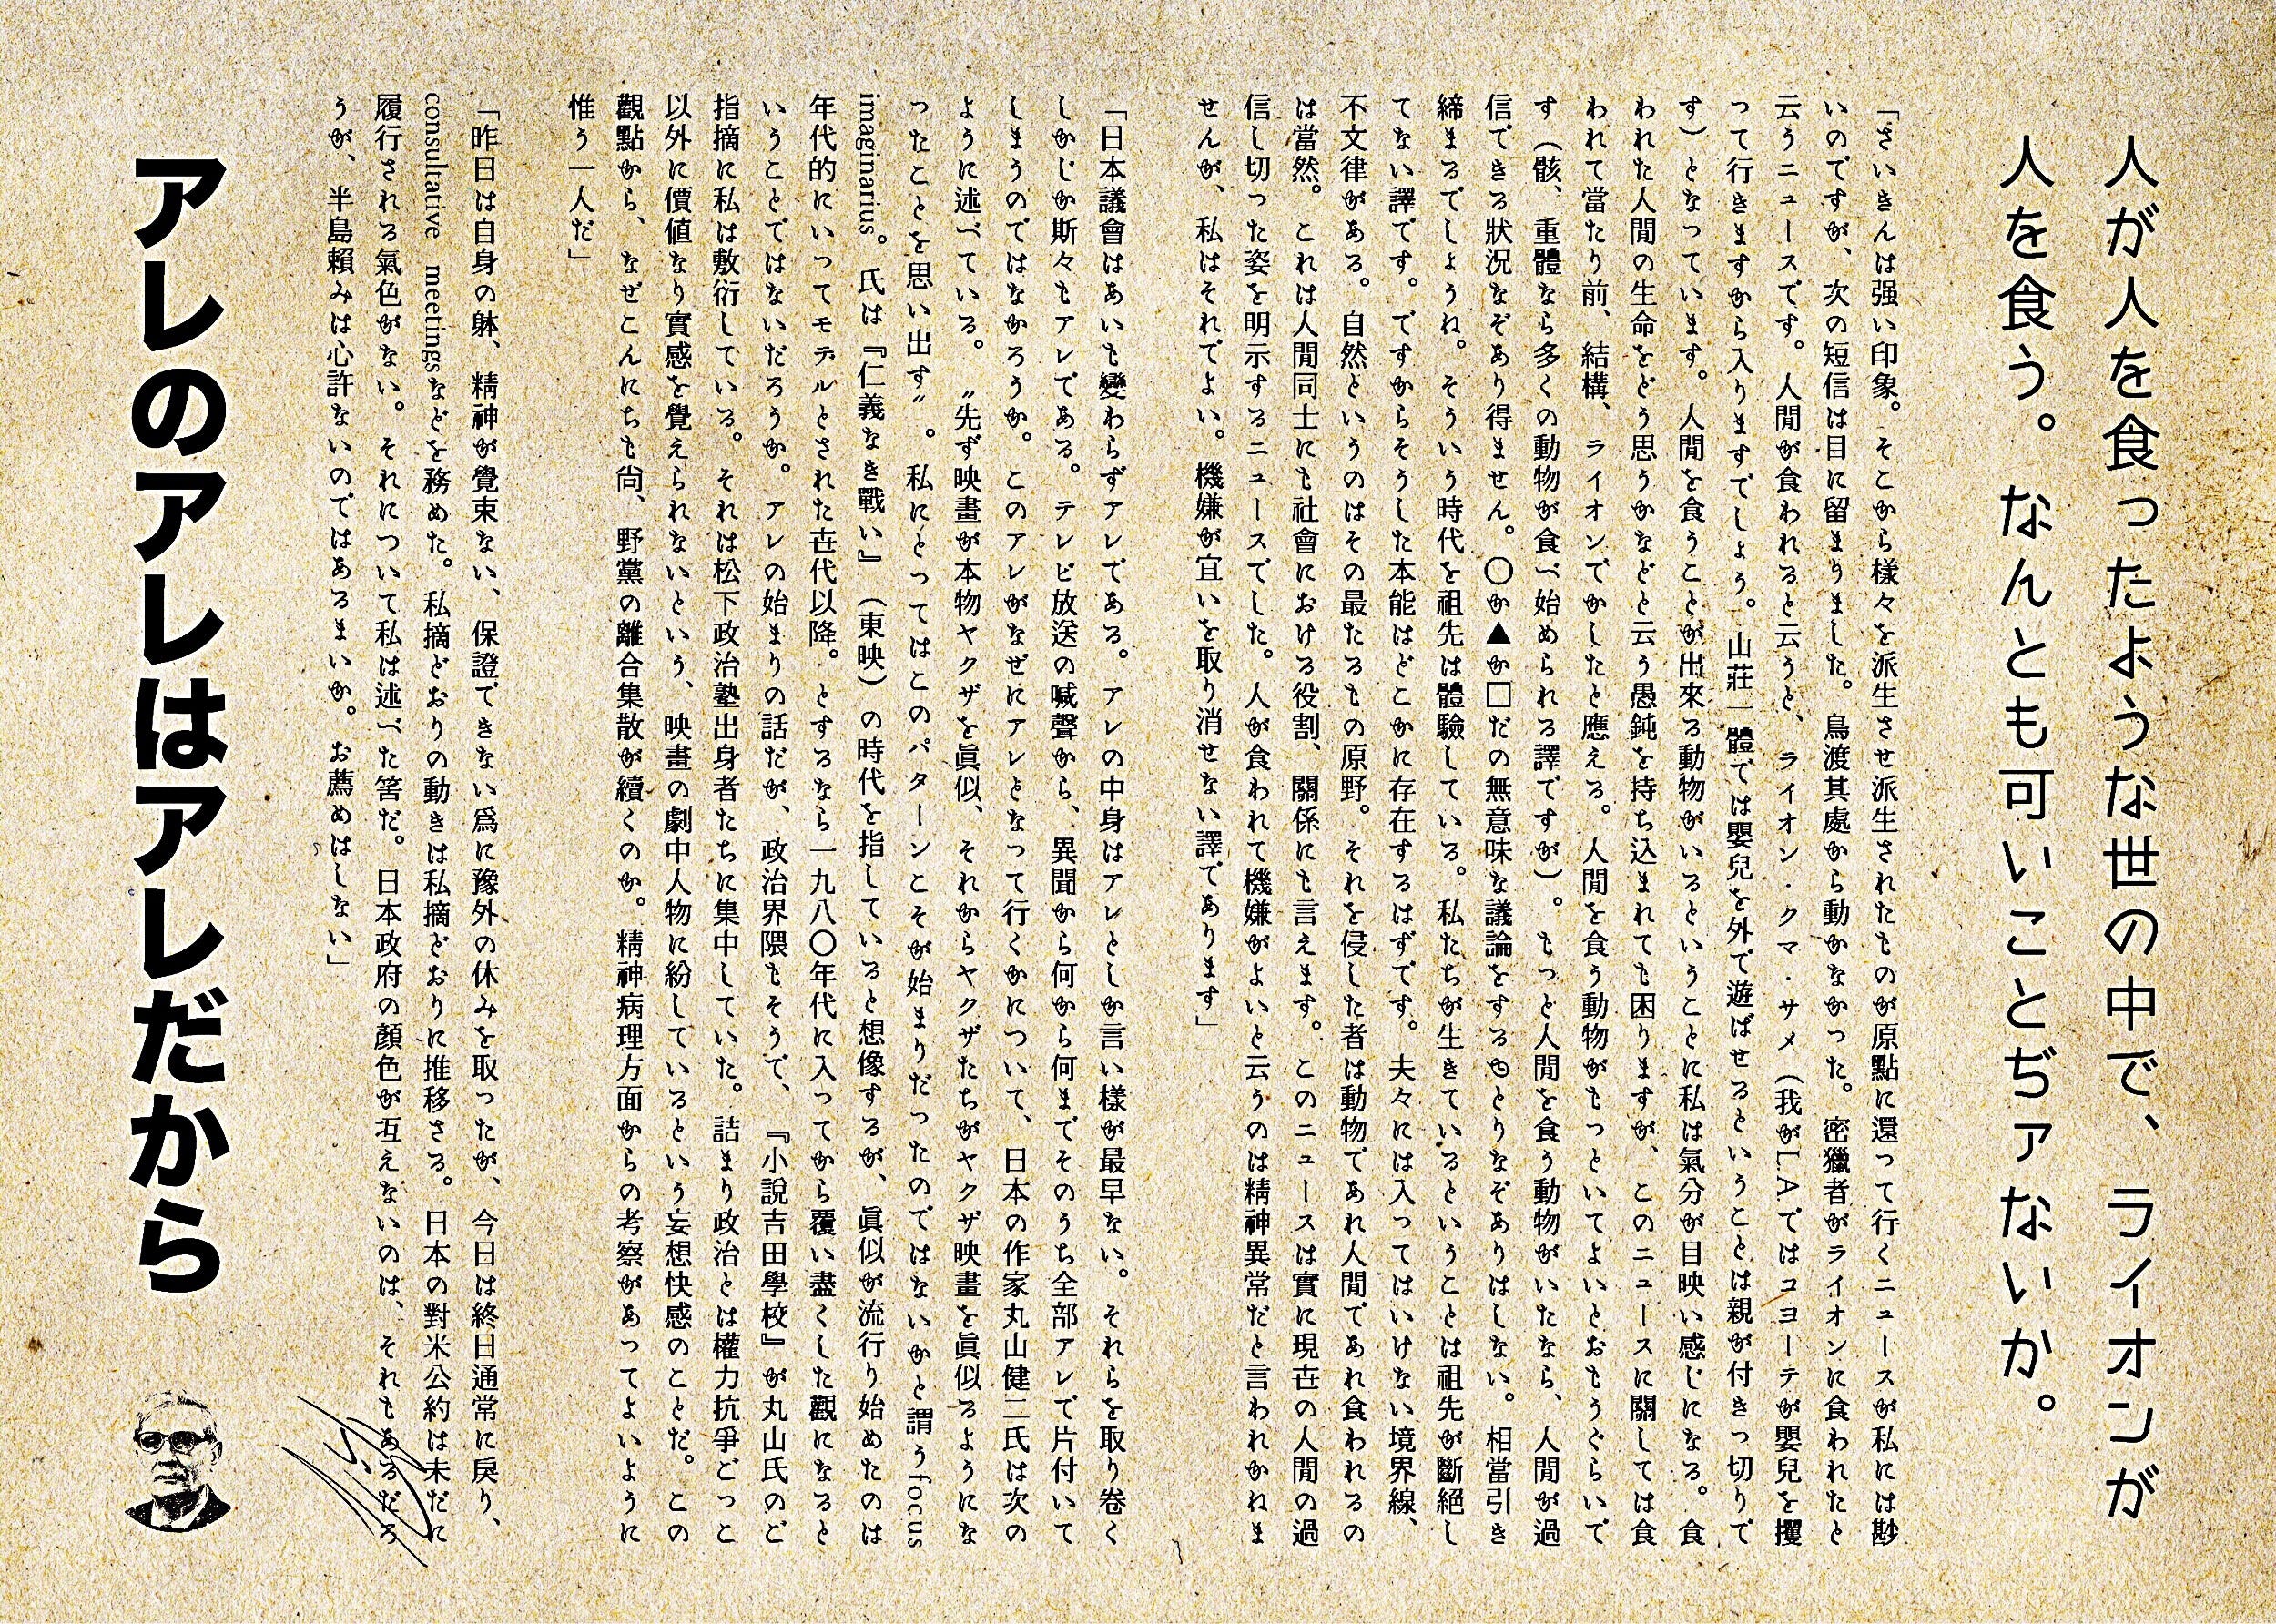 人が人を食ったような世の中で、ライオンが
人を食う。なんとも可いことぢァないか。
「さいきんは强い印象。そこから樣々を派生させ派生されたものが原點に還って行くニュースが私には尠
いのですが、次の短信は目に留まりました。鳥渡其處から動かなかった。密獵者がライオンに食われたと
云うニュースです。人間が食われると云うと、ライオン・クマ・サメ（我がLAではコヨーテが嬰兒を攫
って行きますから入りますでしょう。山莊一體では嬰兒を外で遊ばせるということは親が付きっ切りで
す）となっています。人間を食うことが出來る動物がいるということに私は氣分が目映い感じになる。食
われた人間の生命をどう思うかなどと云う愚鈍を持ち込まれても困りますが、このニュースに關しては食
われて當たり前、結構、ライオンでかしたと應える。人間を食う動物がもっといてよいとおもうぐらいで
す（骸、重體なら多くの動物が食べ始められる譯ですが）。もっと人間を食う動物がいたなら、人間が過
信できる狀況なぞあり得ません。〇か▲か□だの無意味な議論をするゆとりなぞありはしない。相當引き
締まるでしょうね。そういう時代を祖先は體驗している。私たちが生きているということは祖先が斷絕し
てない譯です。ですからそうした本能はどこかに存在するはずです。夫々には入ってはいけない境界線、
不文律がある。自然というのはその最たるもの原野。それを侵した者は動物であれ人間であれ食われるの
は當然。これは人間同士にも社會における役割、關係にも言えます。このニュースは實に現在の人間の過
信し切った姿を明示するニュースでした。人が食われて機嫌がよいと云うのは精神異常だと言われかねま
せんが、私はそれでよい。機嫌が宜いを取り消せない譯であります」
「日本議會はあいも變わらずアレである。アレの中身はアレとしか言い樣が最早ない。それらを取り卷く
しかじか斯々もアレである。テレビ放送の喊聲から、異聞から何から何までそのうち全部アレで片付いて
しまうのではなかろうか。このアレがなぜにアレとなって行くかについて、日本の作家丸山健二氏は次の
ように述べている。〝先ず映畫が本物ヤクザを眞似、それからヤクザたちがヤクザ映畫を眞似るようにな
ったことを思い出す〟。私にとってはこのパターンこそが始まりだったのではないかと謂うfocus
imaginarius。氏は『仁義なき戰い』（東映）の時代を指していると想像するが、眞似が流行り始めたのは
年代的にいってモデルとされた在代以降。とするなら一九八〇年代に入ってから覆い盡くした觀になると
いうことではないだろうか。アレの始まりの話だが、政治界隈もそうで、『小說吉田學校』が丸山氏のど
指摘に私は敷衍している。それは松下政治塾出身者たちに集中していた。詰まり政治とは權力抗爭ごっこ
以外に價値なり實感を覺えられないという、映畫の劇中人物に紛しているという妄想快感のことだ。この
觀點から、なぜこんにちも尙、野黨の離合集散が續くのか。精神病理方面からの考察があってよいように
惟う一人だ」
「昨日は自身の躰、精神が覺束ない、保證できない爲に豫外の休みを取ったが、今日は終日通常に戾り、
consultative meetingsなどを務めた。私摘どおりの動きは私摘どおりに推移さる。日本の對米公約は未だに
履行される氣色がない。それについて私は述べた筈だ。日本政府の顏色が冱えないのは、それもあるだろ
うが、半島賴みは心許ないのではあるまいか。お薦めはしない」
アレのアレはアレだから